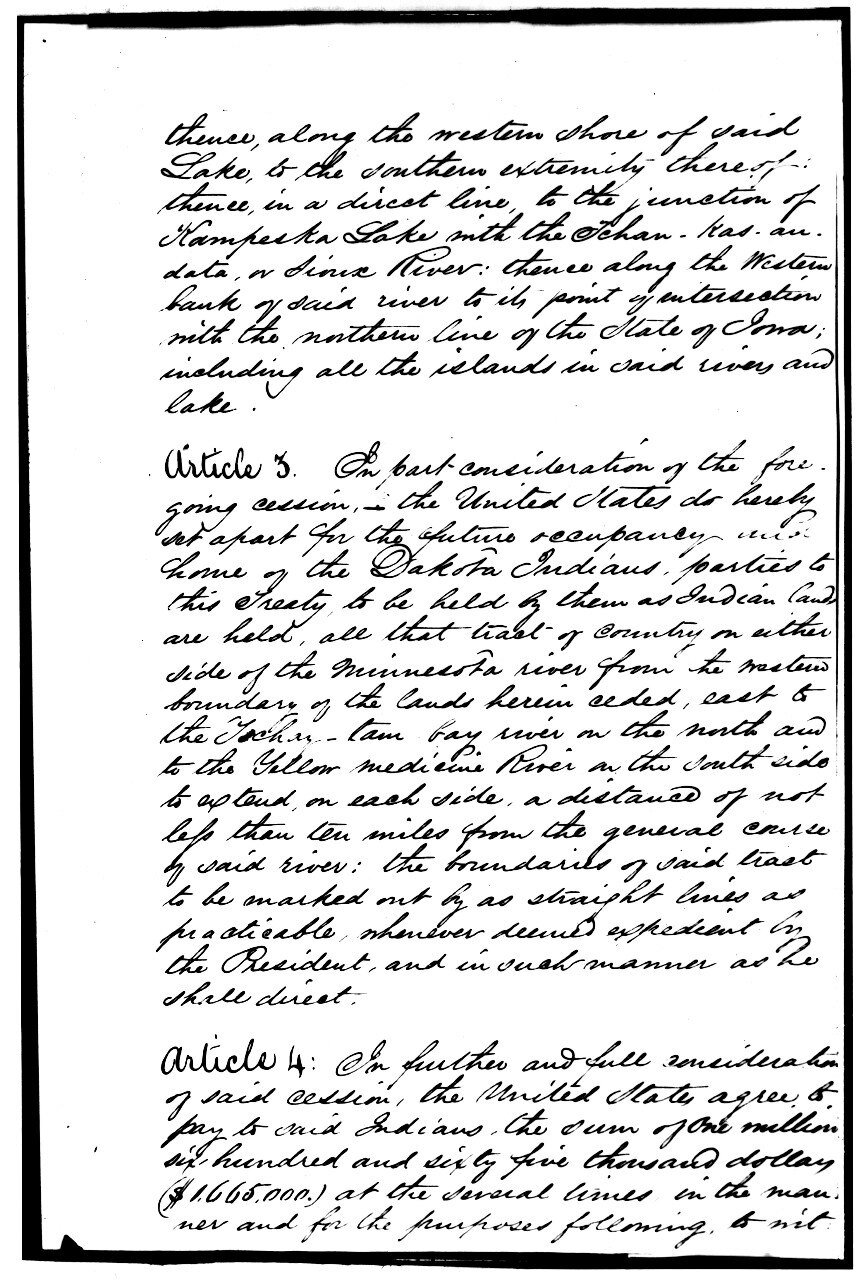 thence, along the western shore of said
Lake, to the southern extremity thereof:
thence, in a direct line, to the junction of
Kampeska Lake with the Tchan-kas-an-
data, or Sioux River: thence along the Western
bank of said river to its point of intersection
with the northern line of the State of Iowa;
including all the islands in said rivers and
lake.
Article 3. In part consideration of the fore-
going cession, the United States do hereby
set apart for the future occupancy and
home of the Dakota Indians, parties to
this Treaty, to be held by them as Indian lands
are held, all that tract of country on either
side of the Minnesota river from the western
boundary of the lands herein ceded, east to
the Tchay-tam bay river on the north and
to the Yellow medicine River on the south side
to extend, on each side, a distance of not
less than ten miles from the general course
of said river: the boundaries of said tract
to be marked out by as straight lines as
practicable, whenever deemed expedient by
the President, and in such manner as he
shall direct.
Article 4: In further and full consideration
of said cession, the United States agree to
pay to said Indians, the sum of One million
six hundred and sixty five thousand dollars
($1.665.000.) at the several times in the man-
ner and for the purposes following, to wit: